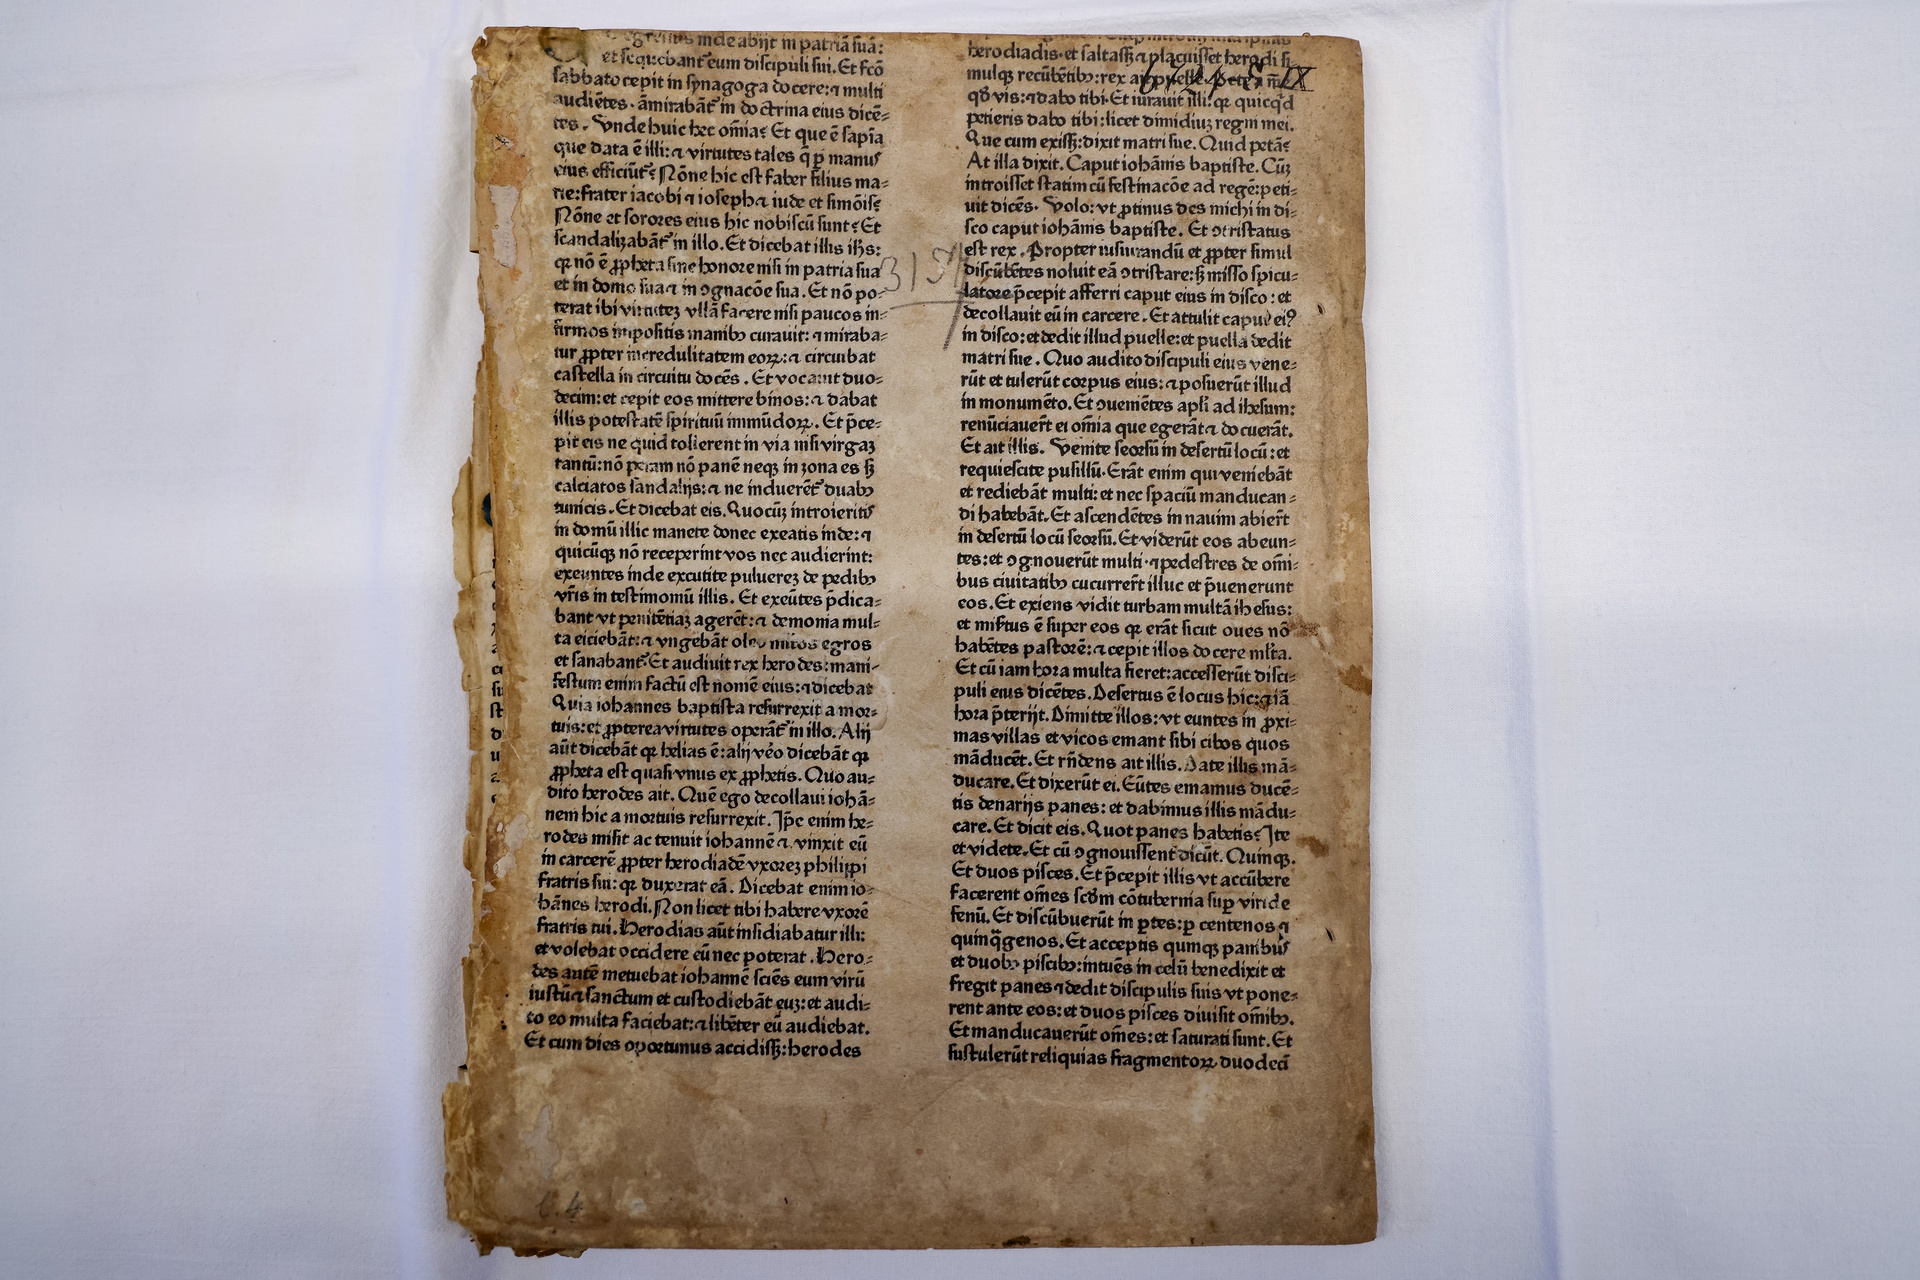 egressus inde abijt in patriã suã:
et sequebant᷑ eum discipuli sui. Et fc̃õ
sabbato cepit in synagoga docere: ⁊ multi
audiẽtes. ãmirabãt᷑ in doctrina eius dicẽ⸗
tes. Vnde huic hec om̃ia? Et que ẽ sapĩa
que data ẽ illi: ⁊ virtutes tales q̃ ꝑ manus
eius efficiũt᷑? Nõne hic est faber filius ma⸗
rie: frater iacobi ⁊ ioseph ⁊ iude et simõis?
Nõne et sorores eius hic nobiscũ sunt? Et
scandalizabãt᷑ in illo. Et dicebat illis ih̃s:
qꝛ nõ ẽ ꝓpheta sine honore nisi in patria sua
et in domo sua ⁊ in ꝯgnacõe sua. Et nõ po⸗
terat ibi virtuteꝫ vllã facere nisi paucos in⸗
firmos impositis manibꝰ curauit: ⁊ miraba⸗
tur ꝓpter incredulitatem eoꝝ: ⁊ circuibat
castella in circuitu docẽs. Et vocauit duo⸗
decim: et cepit eos mittere binos: ⁊ dabat
illis potestatẽ spirituũ immũdoꝝ. Et p̃ce⸗
pit eis ne quid tollerent in via nisi virgaꝫ
tantũ: nõ peram nõ panẽ neqꝫ in zona es sꝫ
calciatos sandalijs: ⁊ ne induerẽt᷑ duabꝰ
tunicis. Et dicebat eis. Quocũqꝫ introieritis
in domũ illic manete donec exeatis inde: ⁊
quicũqꝫ nõ receperint vos nec audierint:
exeuntes inde excutite puluereꝫ de pedibꝰ
vr̃is in testimoniũ illis. Et exeũtes p̃dica⸗
bant vt penitẽtiaꝫ agerẽt: ⁊ demonia mul⸗
ta eiciebãt: ⁊ vngebãt oleo m̃ltos egros
et sanabant᷑. Et audiuit rex herodes: mani⸗
festum enim factũ est nomẽ eius: ⁊ dicebat
Quia iohannes baptista resurrexit a mor⸗
tuis: et ꝓpterea virtutes operãt᷑ in illo. Alij
aũt dicebãt qꝛ helias ẽ: alij vẽo dicebãt qꝛ
ꝓpheta est quasi vnus ex ꝓphetis. Quo au⸗
dito herodes ait. Quẽ ego decollaui iohã⸗
nem hic a mortuis resurrexit. Ip̃e enim he⸗
rodes misit ac tenuit iohannẽ ⁊ vinxit eũ
in carcerẽ ꝓpter herodiadẽ vxoreꝫ philippi
fratris sui: qꝛ duxerat eã. Dicebat enim io⸗
hãnes herodi. Non licet tibi habere vxorẽ
fratris tui. Herodias aũt insidiabatur illi:
et volebat occidere eũ nec poterat. Hero⸗
des autẽ metuebat iohannẽ sciẽs eum virũ
iustũ ⁊ sanctum et custodiebãt euꝫ: et audi⸗
to eo multa faciebat: ⁊ libẽter eũ audiebat.
Et cum dies oportunus accidissꝫ: herodes
herodiadis. et saltassꝫ ⁊ placuisset herodi si⸗
mulqꝫ recũbẽtibꝰ: rex ait puelle. Pete a m̃
qd̃ vis: ⁊ dabo tibi. Et iurauit illi: qꝛ quicq̃d
petieris dabo tibi: licet dimidiuꝫ regni mei.
Que cum exissꝫ: dixit matri sue. Quid petã?
At illa dixit. Caput iohãnis baptiste. Cũqꝫ
introisset statim cũ festinacõe ad regẽ: peti⸗
uit dicẽs. Volo: vt ꝓtinus des michi in di⸗
sco caput iohãnis baptiste. Et ꝯtristatus
est rex. Propter iusiurandũ et ꝓpter simul
discũbẽtes noluit eã ꝯtristare: sꝫ misso spicu⸗
latore p̃cepit afferri caput eius in disco: et
decollauit eũ in carcere. Et attulit caput eiꝰ
in disco: et dedit illud puelle: et puella dedit
matri sue. Quo audito discipuli eius vene⸗
rũt et tulerũt corpus eius: ⁊ posuerũt illud
in monumẽto. Et ꝯueniẽtes apl̃i ad ihesum:
renũciauer̃t ei om̃ia que egerãt ⁊ docuerãt.
Et ait illis. Venite seorsũ in desertũ locũ: et
requiescite pusillũ. Erãt enim qui veniebãt
et rediebãt multi: et nec spaciũ manducan⸗
di habebãt. Et ascendẽtes in nauim abier̃t
in desertũ locũ seorsũ. Et viderũt eos abeun⸗
tes: et ꝯgnouerũt multi. ⁊ pedestres de om̃i⸗
bus ciuitatibꝰ cucurrer̃t illuc et p̃uenerunt
eos. Et exiens vidit turbam multã ihesus:
et mis̃tus ẽ super eos qꝛ erãt sicut oues nõ
habẽtes pastorẽ: ⁊ cepit illos docere ml̃ta.
Et cũ iam hora multa fieret: accesserũt disci⸗
puli eius dicẽtes. Desertus ẽ locus hic: ⁊ iã
hora p̃terijt. Dimitte illos: vt euntes in ꝓxi⸗
mas villas et vicos emant sibi cibos quos
mãducẽt. Et rñdens ait illis. Date illis mã⸗
ducare. Et dixerũt ei. Eũtes emamus ducẽ⸗
tis denarijs panes: et dabimus illis mãdu⸗
care. Et dicit eis. Quot panes habetis? Ite
et videte. Et cũ ꝯgnouissent dicũt. Quinqꝫ.
Et duos pisces. Et p̃cepit illis vt accũbere
facerent om̃es scd̃m cõtubernia suꝑ viride
fenũ. Et discũbuerũt in ꝑtes: ꝑ centenos ⁊
quinq̃genos. Et acceptis quinqꝫ panibus
et duobꝰ piscibꝰ: intuẽs in celũ benedixit et
fregit panes ⁊ dedit discipulis suis vt pone⸗
rent ante eos: et duos pisces diuisit om̃ibꝰ.
Et manducauerũt om̃es: et saturati sunt. Et
sustulerũt reliquias fragmentoꝝ duodecĩ